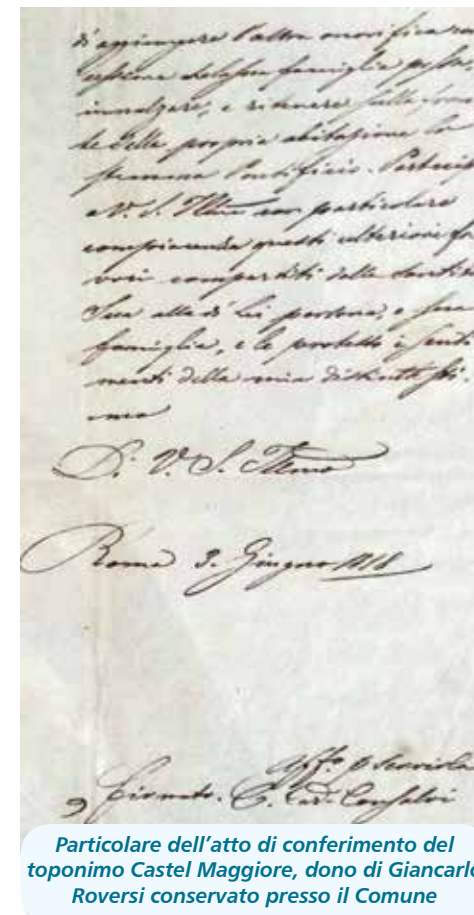 di aggiungere l'altra onorifica
della sua famiglia possa
innalzare, e ritenere sulla fron
te della propria abitazione lo
stemma Pontificio. Partecip
a V. S. Illma con particolare
compiacenza questi ulteriori fa
vori compartiti dalla Santità
Sua alla di Lei persona, e sua
famiglia, e le protesto i senti
menti della mia distintissi
ma
Di V. S. Illma
Roma 3. Giugno 1818
Affo p Servirla
Firmato. E. Card. Consalvi
Particolare dell'atto di conferimento del
toponimo Castel Maggiore, dono di Giancarlo
Roversi conservato presso il Comune